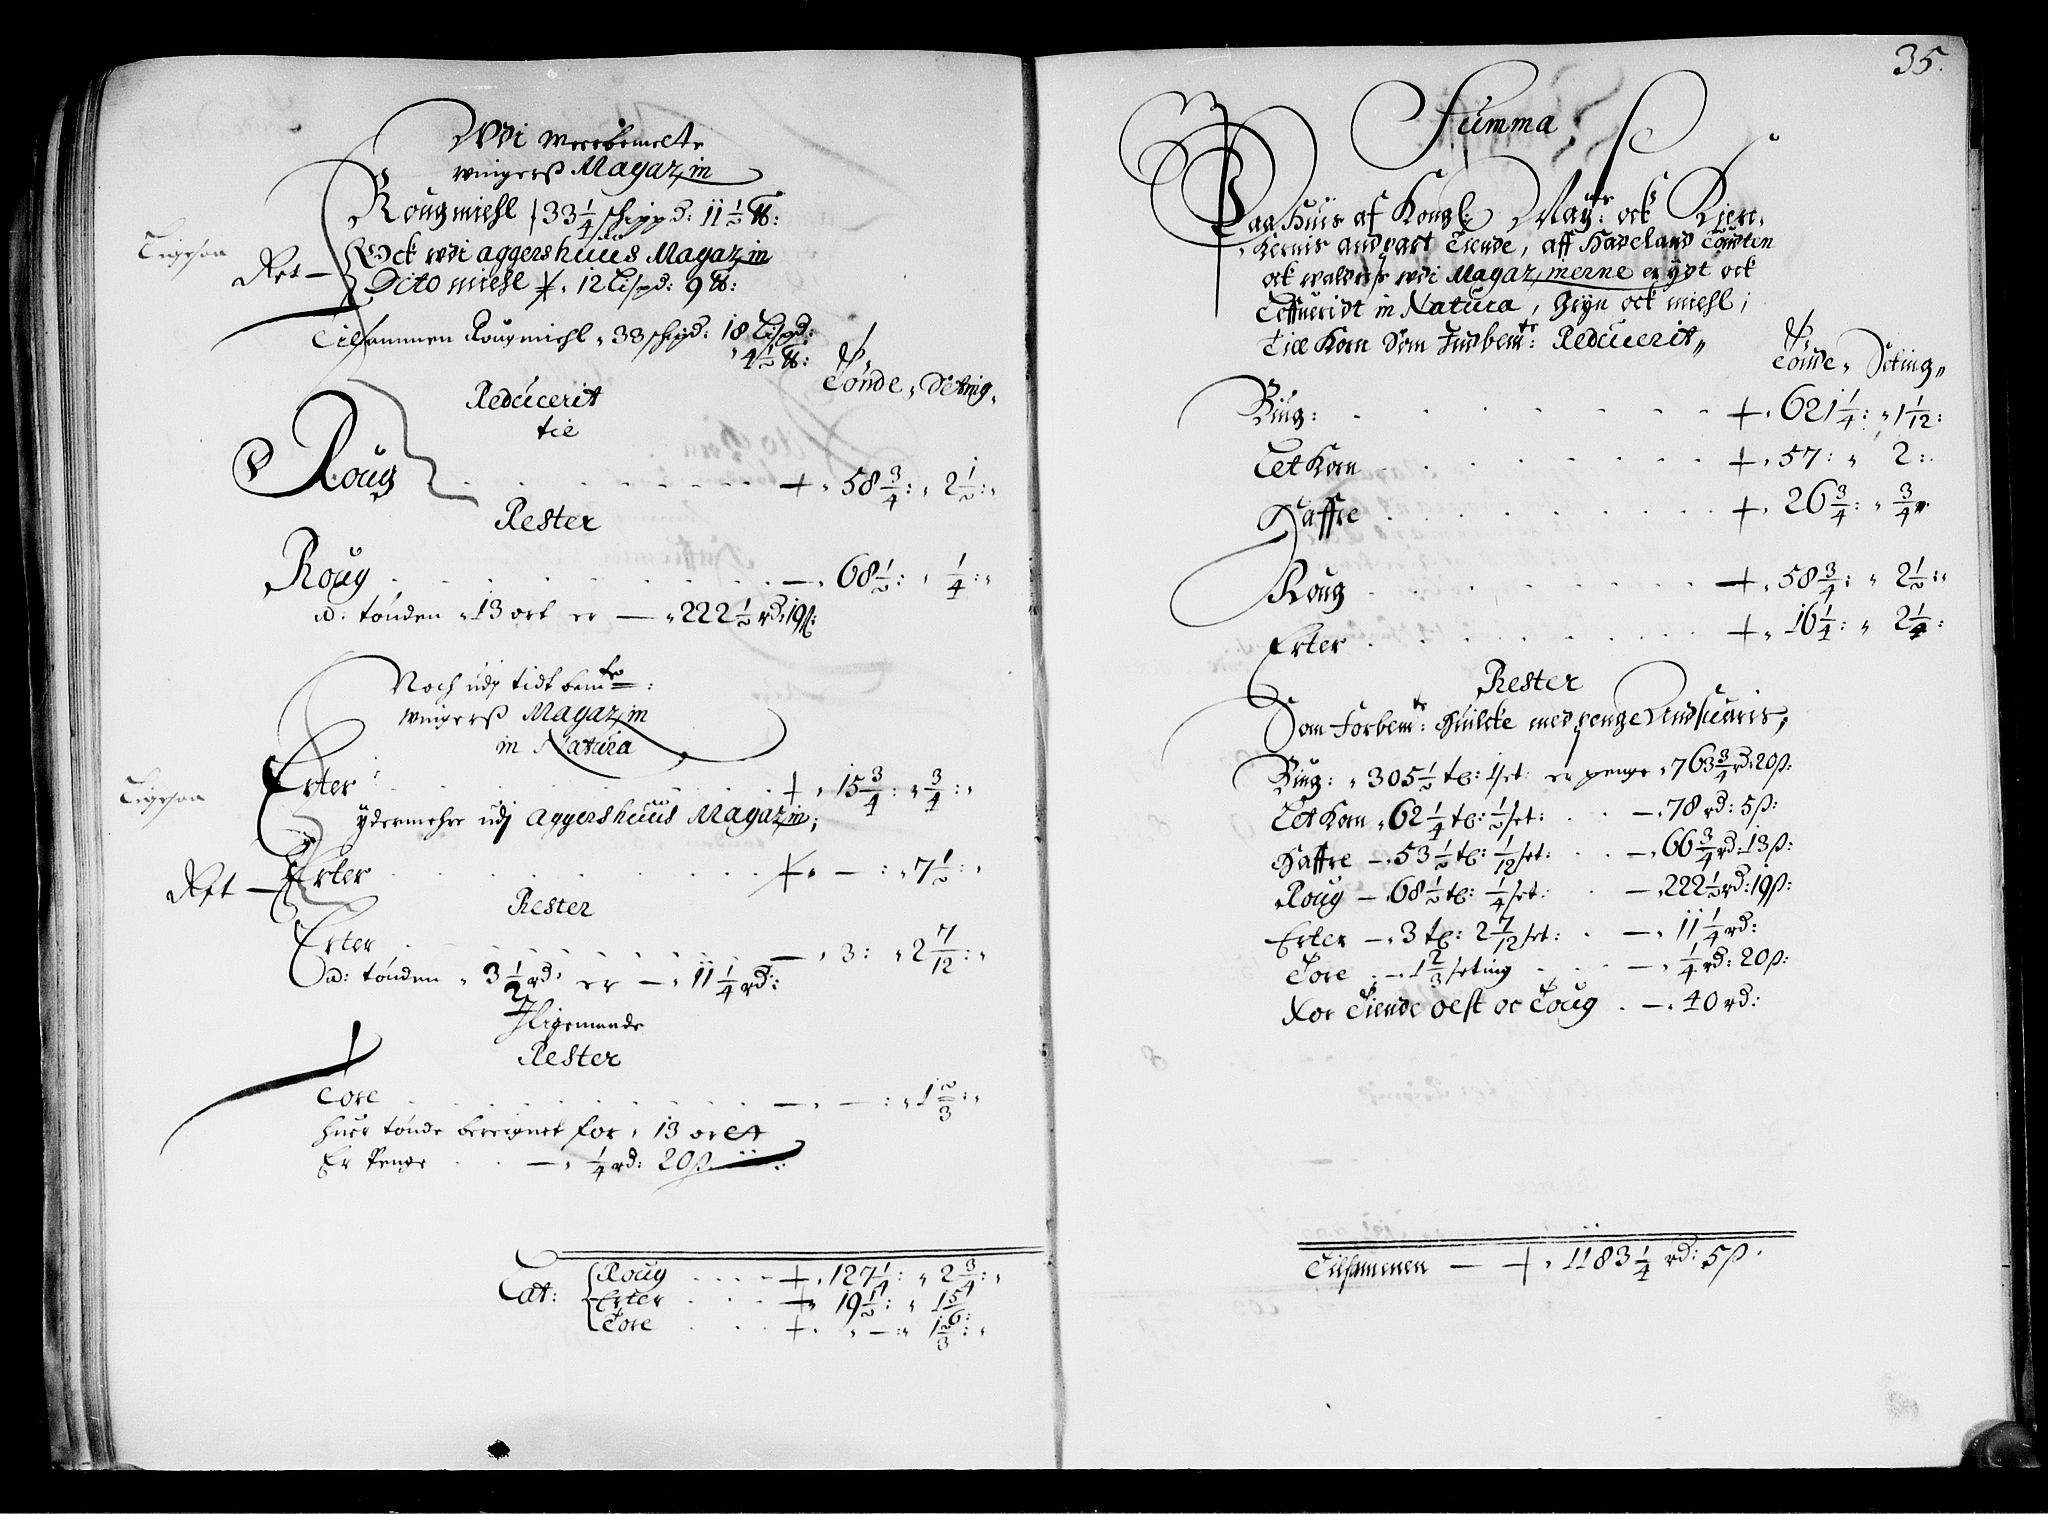 Udi meerbemelte
wingerß Magazin
Rougmiehl 33 1/4 schippd: 11 1/2 ℔:
Ock udi aggershuus Magazin
Ret —
Dito miehl 12 Lispd: 9 ℔:
Tilsammen Rougmiehl 33 schipd: 18 Lispd:
4 1/2 ℔:
Tönde Setting
Reducerit
til
Roug + 58 3/4: 2 1/2:
Rester
Roug — 68 1/2: 1/4:
a: tönden 13 ort er — 222 1/2 rd 19 ß:
Noch udj tidtbemte:
wingerß Magazin
in Natura
Erter + 15 3/4: 3/4:
ydermehre udj aggershuus Magazin;
Ret — Erter + — : 7 1/2:
Rester
Erter — 3: 2 7/12:
a: tönden 3 1/2 rd: er — 11 1/4 rd:
Iligemaade
Rester
Tore — — : 1 2/3:
huer tönde bereignet for 13 ort
Er Penge — 1/4 rd: 20 ß
Lat: Roug + 127 1/4: 2 3/4:
Erter + 19 1/2: 1 5/6:
Tore + — : 1 2/3:
35.
Summa
Paa Huis af Kongl: Mayts: ock Kierc-
kernis andpart Tiende, aff Hadeland Landten
ock waldris udi Magazinerne er ydt ock
Leffueridt in Natura, Gryn ock miehl;
Till Korn Som Indbemte: Reducerit
Tönde Setting
Biug: + 621 1/4: 1 1/12:
Let Korn + 57: 2:
Haffre + 26 3/4: 3/4
Roug + 58 3/4: 2 1/2:
Erter + 16 1/4: 2 1/4:
Rester
Som Forbemte: Huilcke med penge Andsuaris,
Biug: 305 1/2 tℓ: 1 set: er penge 763 3/4 rd 20 ß:
Let Korn 62 1/4 tℓ: 1/2 set: — 78 rd: 5 ß:
Haffre — 53 1/2 tℓ: 1/12 set: — 66 3/4 rd: 13 ß:
Roug — 68 1/2 tℓ: 1/4 set: — 222 1/2 rd: 19 ß:
Erter — 3 tℓ: 2 7/12 set: — 11 1/4 rd:
Tore — 1 2/3 setting — 1/4 rd: 20 ß:
For Tiende oest oc Toug — 40 rd:
Tilsamenen — + 1183 1/4 rd: 5 ß